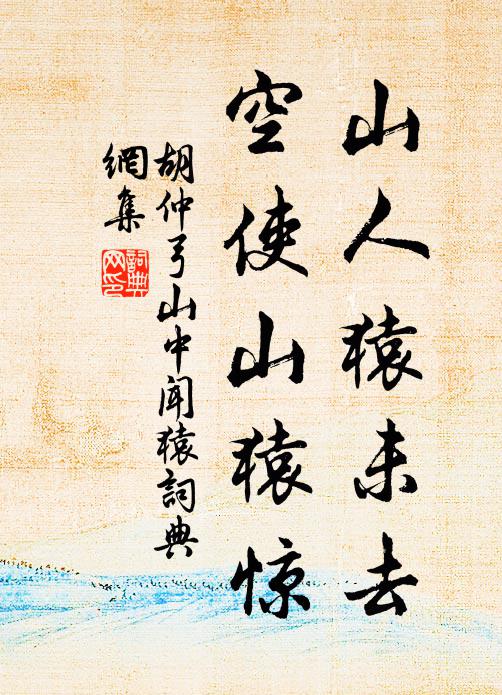 山人猿未去
空使山猿惊
胡仲弓山中闻猿詞典
網集
詞典网印